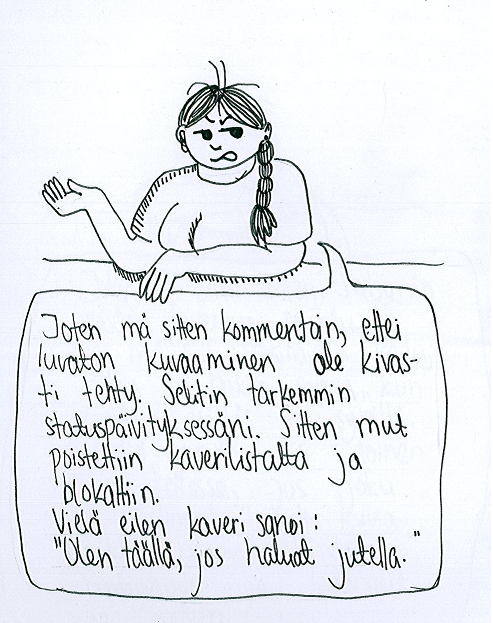 Joten mä sitten kommentoin, ettei
luvaton kuvaaminen ole kivas-
ti tehty. Selitin tarkemmin
statuspäivityksessäni. Sitten mut
poistettiin kaverilistalta ja
blokattiin.
Vielä eilen kaveri sanoi:
"Olen täällä, jos haluat jutella."